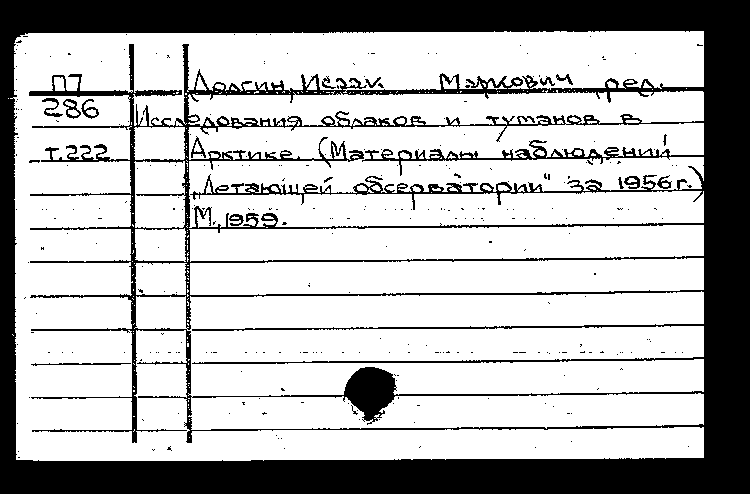 П7 Долгин, Исаак Маркович, ред.
286 Исследования облаков и туманов в
т.222 Арктике. (Материалы наблюдений
„Летающей обсерватории" за 1956г.)
М., 1959.